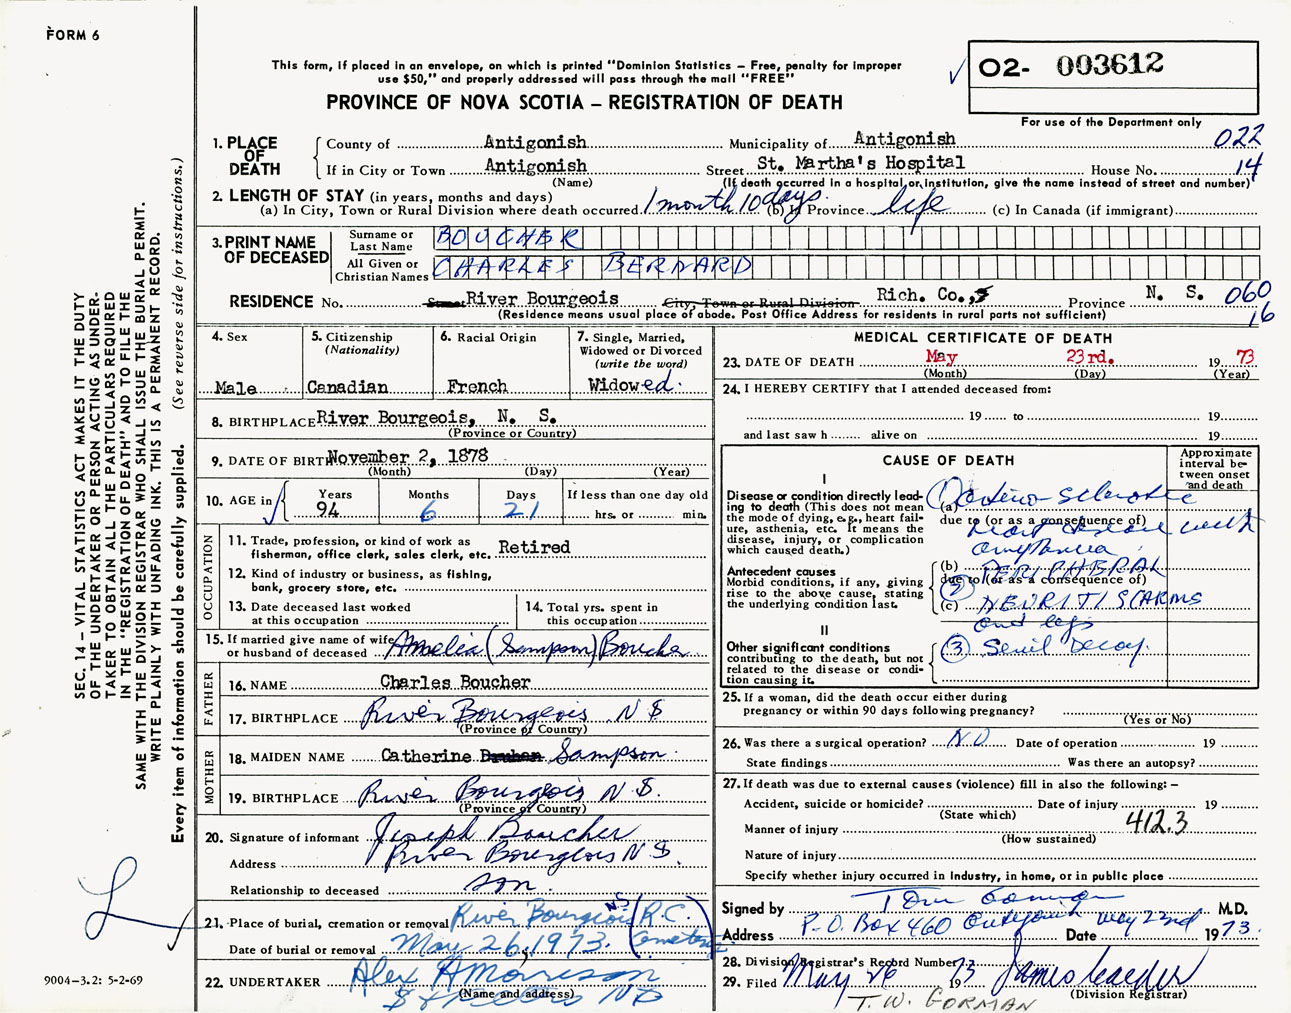 FORM 6
This form, if placed in an envelope, on which is printed "Dominion Statistics – Free, penalty for improper
use $50," and properly addressed will pass through the mail "FREE"
PROVINCE OF NOVA SCOTIA – REGISTRATION OF DEATH
O2- 003612
For use of the Department only
1. PLACE OF DEATH
County of Antigonish Municipality of Antigonish 022
If in City or Town Antigonish Street St. Martha's Hospital House No. 14
(Name) (If death occurred in a hospital or institution, give the name instead of street and number)
2. LENGTH OF STAY (in years, months and days)
(a) In City, Town or Rural Division where death occurred 1 month 10 days. (b) In Province life (c) In Canada (if immigrant)
3. PRINT NAME OF DECEASED
Surname or Last Name BOUCHER
All Given or Christian Names CHARLES BERNARD
RESIDENCE No. Street River Bourgeois City, Town or Rural Division Rich. Co., Province N. S. 060
(Residence means usual place of abode. Post Office Address for residents in rural parts not sufficient) 16
4. Sex
Male
5. Citizenship
(Nationality)
Canadian
6. Racial Origin
French
7. Single, Married,
Widowed or Divorced
(write the word)
Widowed.
8. BIRTHPLACE River Bourgeois, N. S.
(Province or Country)
9. DATE OF BIRTH November 2, 1878
(Month) (Day) (Year)
10. AGE in
Years Months Days If less than one day old
94 6 21 hrs. or min.
OCCUPATION
11. Trade, profession, or kind of work as
fisherman, office clerk, sales clerk, etc. Retired
12. Kind of industry or business, as fishing,
bank, grocery store, etc.
13. Date deceased last worked
at this occupation
14. Total yrs. spent in
this occupation
15. If married give name of wife
or husband of deceased Amelia (Sampson) Boucher
FATHER
16. NAME Charles Boucher
17. BIRTHPLACE River Bourgeois N S
(Province or Country)
MOTHER
18. MAIDEN NAME Catherine Sampson
19. BIRTHPLACE River Bourgeois N S.
(Province or Country)
20. Signature of informant Joseph Boucher
Address River Bourgeois N S.
Relationship to deceased son.
21. Place of burial, cremation or removal River Bourgeois NS (R.C. Cemetery)
Date of burial or removal May 26, 1973.
22. UNDERTAKER Alex A Morrison
St Peters NS
(Name and address)
MEDICAL CERTIFICATE OF DEATH
23. DATE OF DEATH May 23rd. 1973
(Month) (Day) (Year)
24. I HEREBY CERTIFY that I attended deceased from:
19 to 19
and last saw h alive on 19
CAUSE OF DEATH
Approximate
interval be-
tween onset
and death
I
Disease or condition directly lead-
ing to death (This does not mean
the mode of dying, e.g., heart fail-
ure, asthenia, etc. It means the
disease, injury, or complication
which caused death.)
(a) Arterio-sclerotic
due to (or as a consequence of)
heart disease with
Antecedent causes
Morbid conditions, if any, giving
rise to the above cause, stating
the underlying condition last.
(b) PERIPHERAL
due to (or as a consequence of)
(2)
(c) NEURITIS ARMS
and legs
II
Other significant conditions
contributing to the death, but not
related to the disease or condi-
tion causing it.
(3) Senil Decay.
25. If a woman, did the death occur either during
pregnancy or within 90 days following pregnancy?
(Yes or No)
26. Was there a surgical operation? NO Date of operation 19
State findings Was there an autopsy?
27. If death was due to external causes (violence) fill in also the following: –
Accident, suicide or homicide? Date of injury 19
(State which)
Manner of injury 412.3
(How sustained)
Nature of injury
Specify whether injury occurred in industry, in home, or in public place
Signed by Tom Gorman M.D.
Address P.O. Box 460 Antigonish Date May 23rd 1973.
28. Division Registrar's Record Number
29. Filed May 26 1973
(Division Registrar)
T. W. GORMAN
SEC. 14 – VITAL STATISTICS ACT MAKES IT THE DUTY
OF THE UNDERTAKER OR PERSON ACTING AS UNDER-
TAKER TO OBTAIN ALL THE PARTICULARS REQUIRED
IN THE "REGISTRATION OF DEATH" AND TO FILE THE
SAME WITH THE DIVISION REGISTRAR WHO SHALL ISSUE THE BURIAL PERMIT.
WRITE PLAINLY WITH UNFADING INK. THIS IS A PERMANENT RECORD.
Every item of information should be carefully supplied. (See reverse side for instructions.)
9004-3.2: 5-2-69